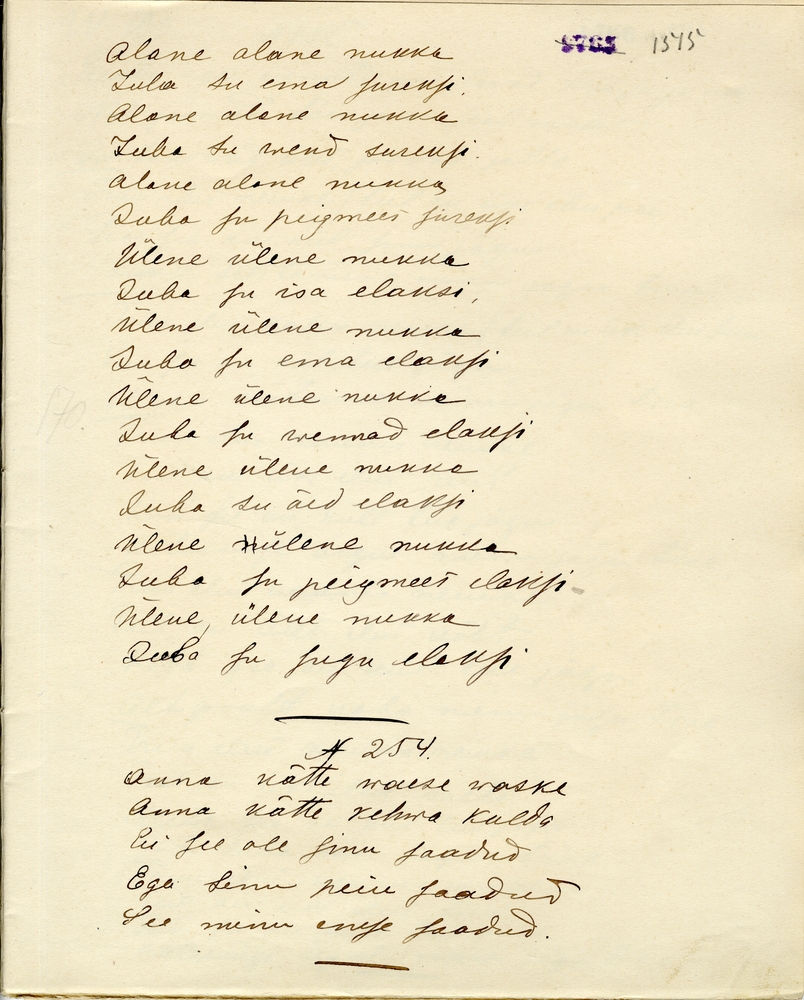 1575
Alane alane nukka
Juba su ema sureksi.
Alane alane nukka
Juba su wend sureksi.
Alane alane nukka
Juba su peigmees sureksi
Ülene ülene nukka
Juba su isa elaksi,
Ülene ülene nukka
Juba su ema elaksi
Ülene ülene nukka
Juba su wennad elaksi
Ülene ülene nukka
Juba su äed elaksi
Ülene ülene nukka
Juba su peigmees elaksi
Ülene, ülene nukka
Juba su sugu elaksi
N 254.
Anna kätte waese waske
Anna kätte kehwa kulda
Ei see ole sinu saadud
Ega sinu peiu saadud
See minu enese saadud.